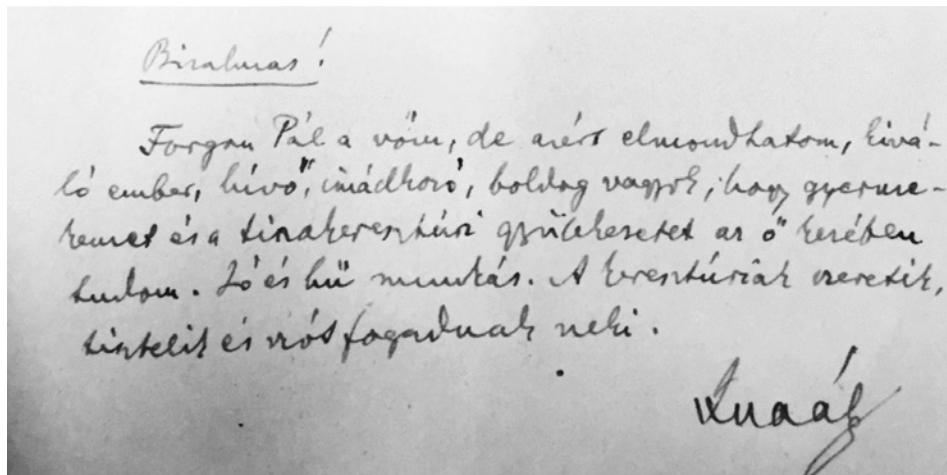 Bizalmas!
Forgon Pál a vőm, de azért elmondhatom, kivá-
ló ember, hívő, imádkozó, boldog vagyok, hogy gyerme-
kemet és a tiszakeresztúri gyülekezetet az ő kezében
tudom. Jó és hű munkás. A keresztúriak szeretik,
tisztelik és szót fogadnak neki.